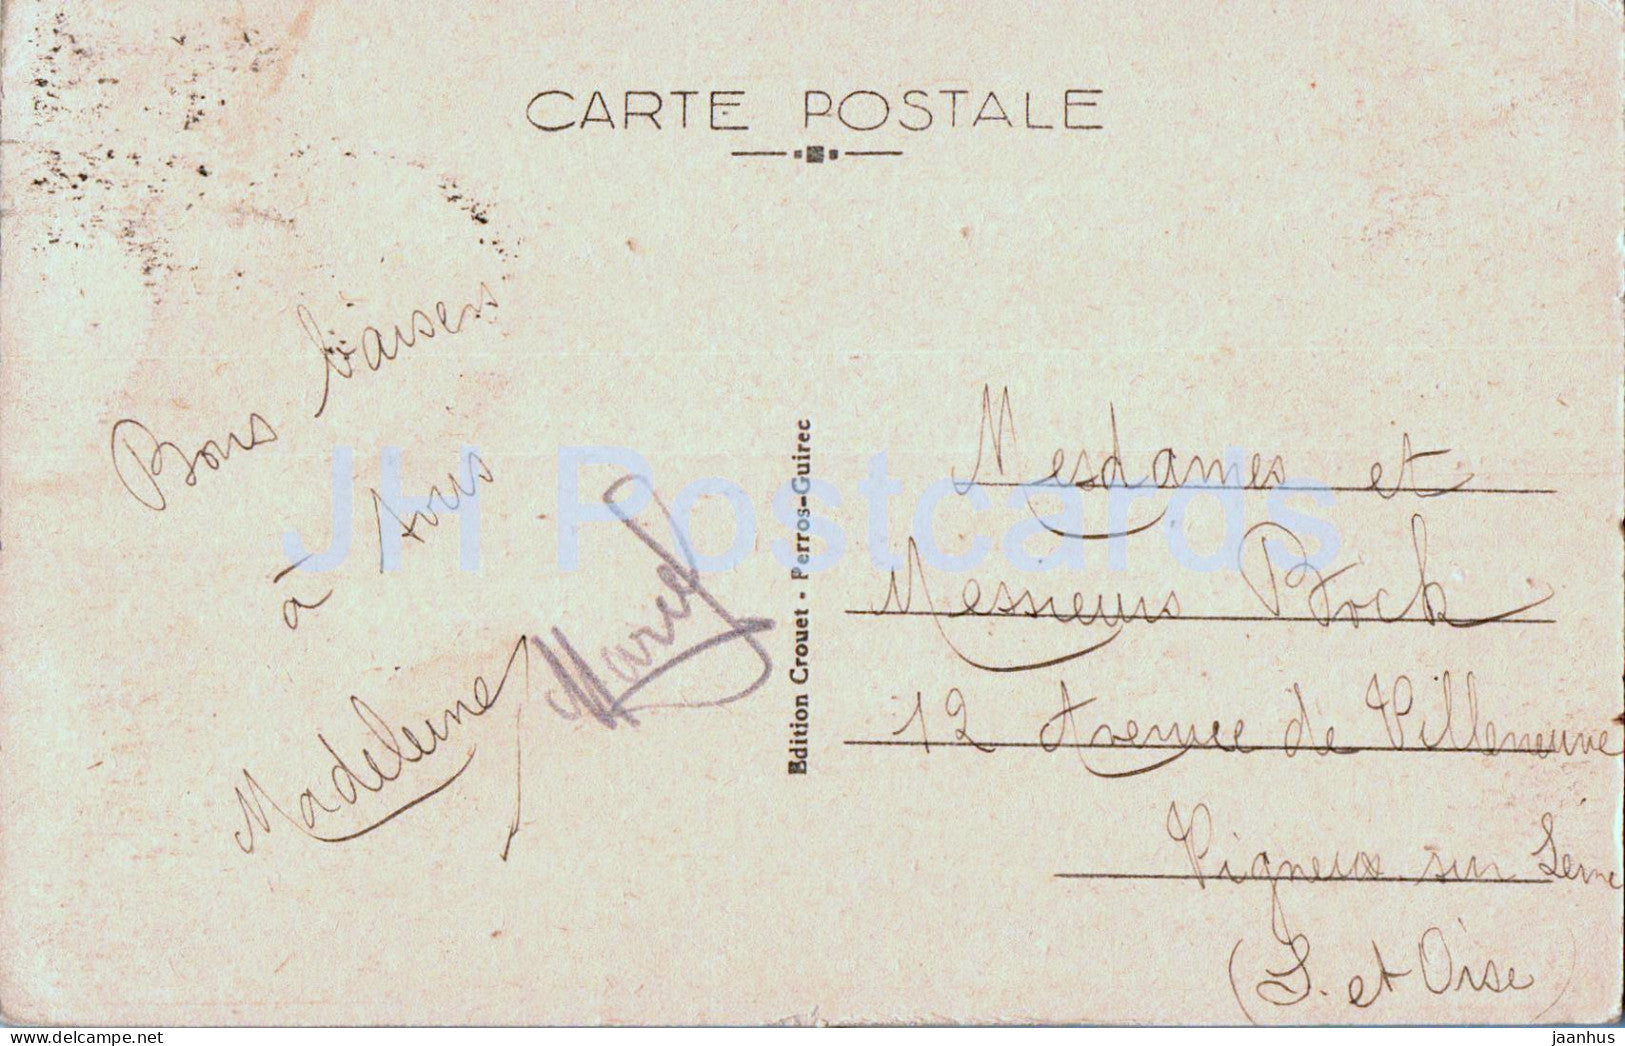 CARTE POSTALE
Bons baisers
à tous
Madeleine
Marcel
Edition Crouet - Perros-Guirec
Mesdames et
Messieurs Bock
12 Avenue de Villeneuve
Vigneux sur Seine
(S. et Oise)
JH Postcards
delcampe.net
jaanhus